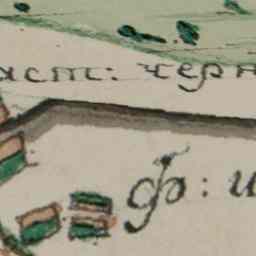 част: черн
ф: и